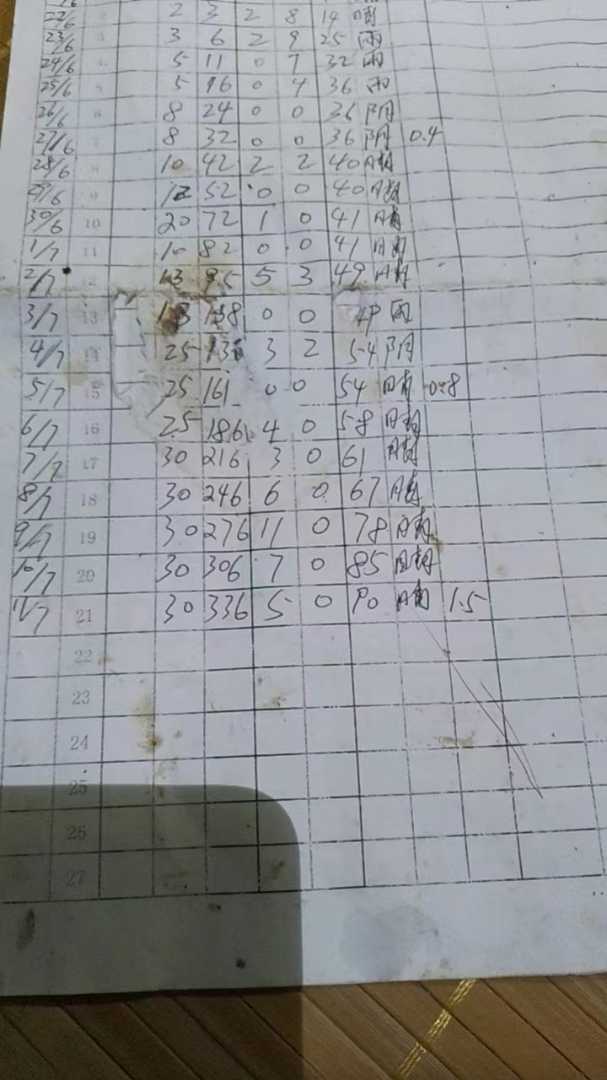 22/6 2 3 2 8 14 晴
23/6 3 6 2 9 25 雨
24/6 4 5 11 0 7 32 雨
25/6 5 5 16 0 4 36 雨
26/6 6 8 24 0 0 36 阴
27/6 7 8 32 0 0 36 阴 0.4
28/6 8 10 42 2 2 40 晴
29/6 9 52 0 0 40 晴
30/6 10 20 72 1 0 41 晴
1/7 11 10 82 0 0 41 晴
2/7 12 13 95 5 3 49 晴
3/7 13 0 0 49 雨
4/7 14 25 3 2 54 阴
5/7 15 25 161 0 0 54 晴 0.8
6/7 16 25 186 4 0 58 晴
7/7 17 30 216 3 0 61 晴
8/7 18 30 246 6 0 67 晴
9/7 19 30 276 11 0 78 晴
10/7 20 30 306 7 0 85 晴
11/7 21 30 336 5 0 90 晴 1.5
22
23
24
25
26
27